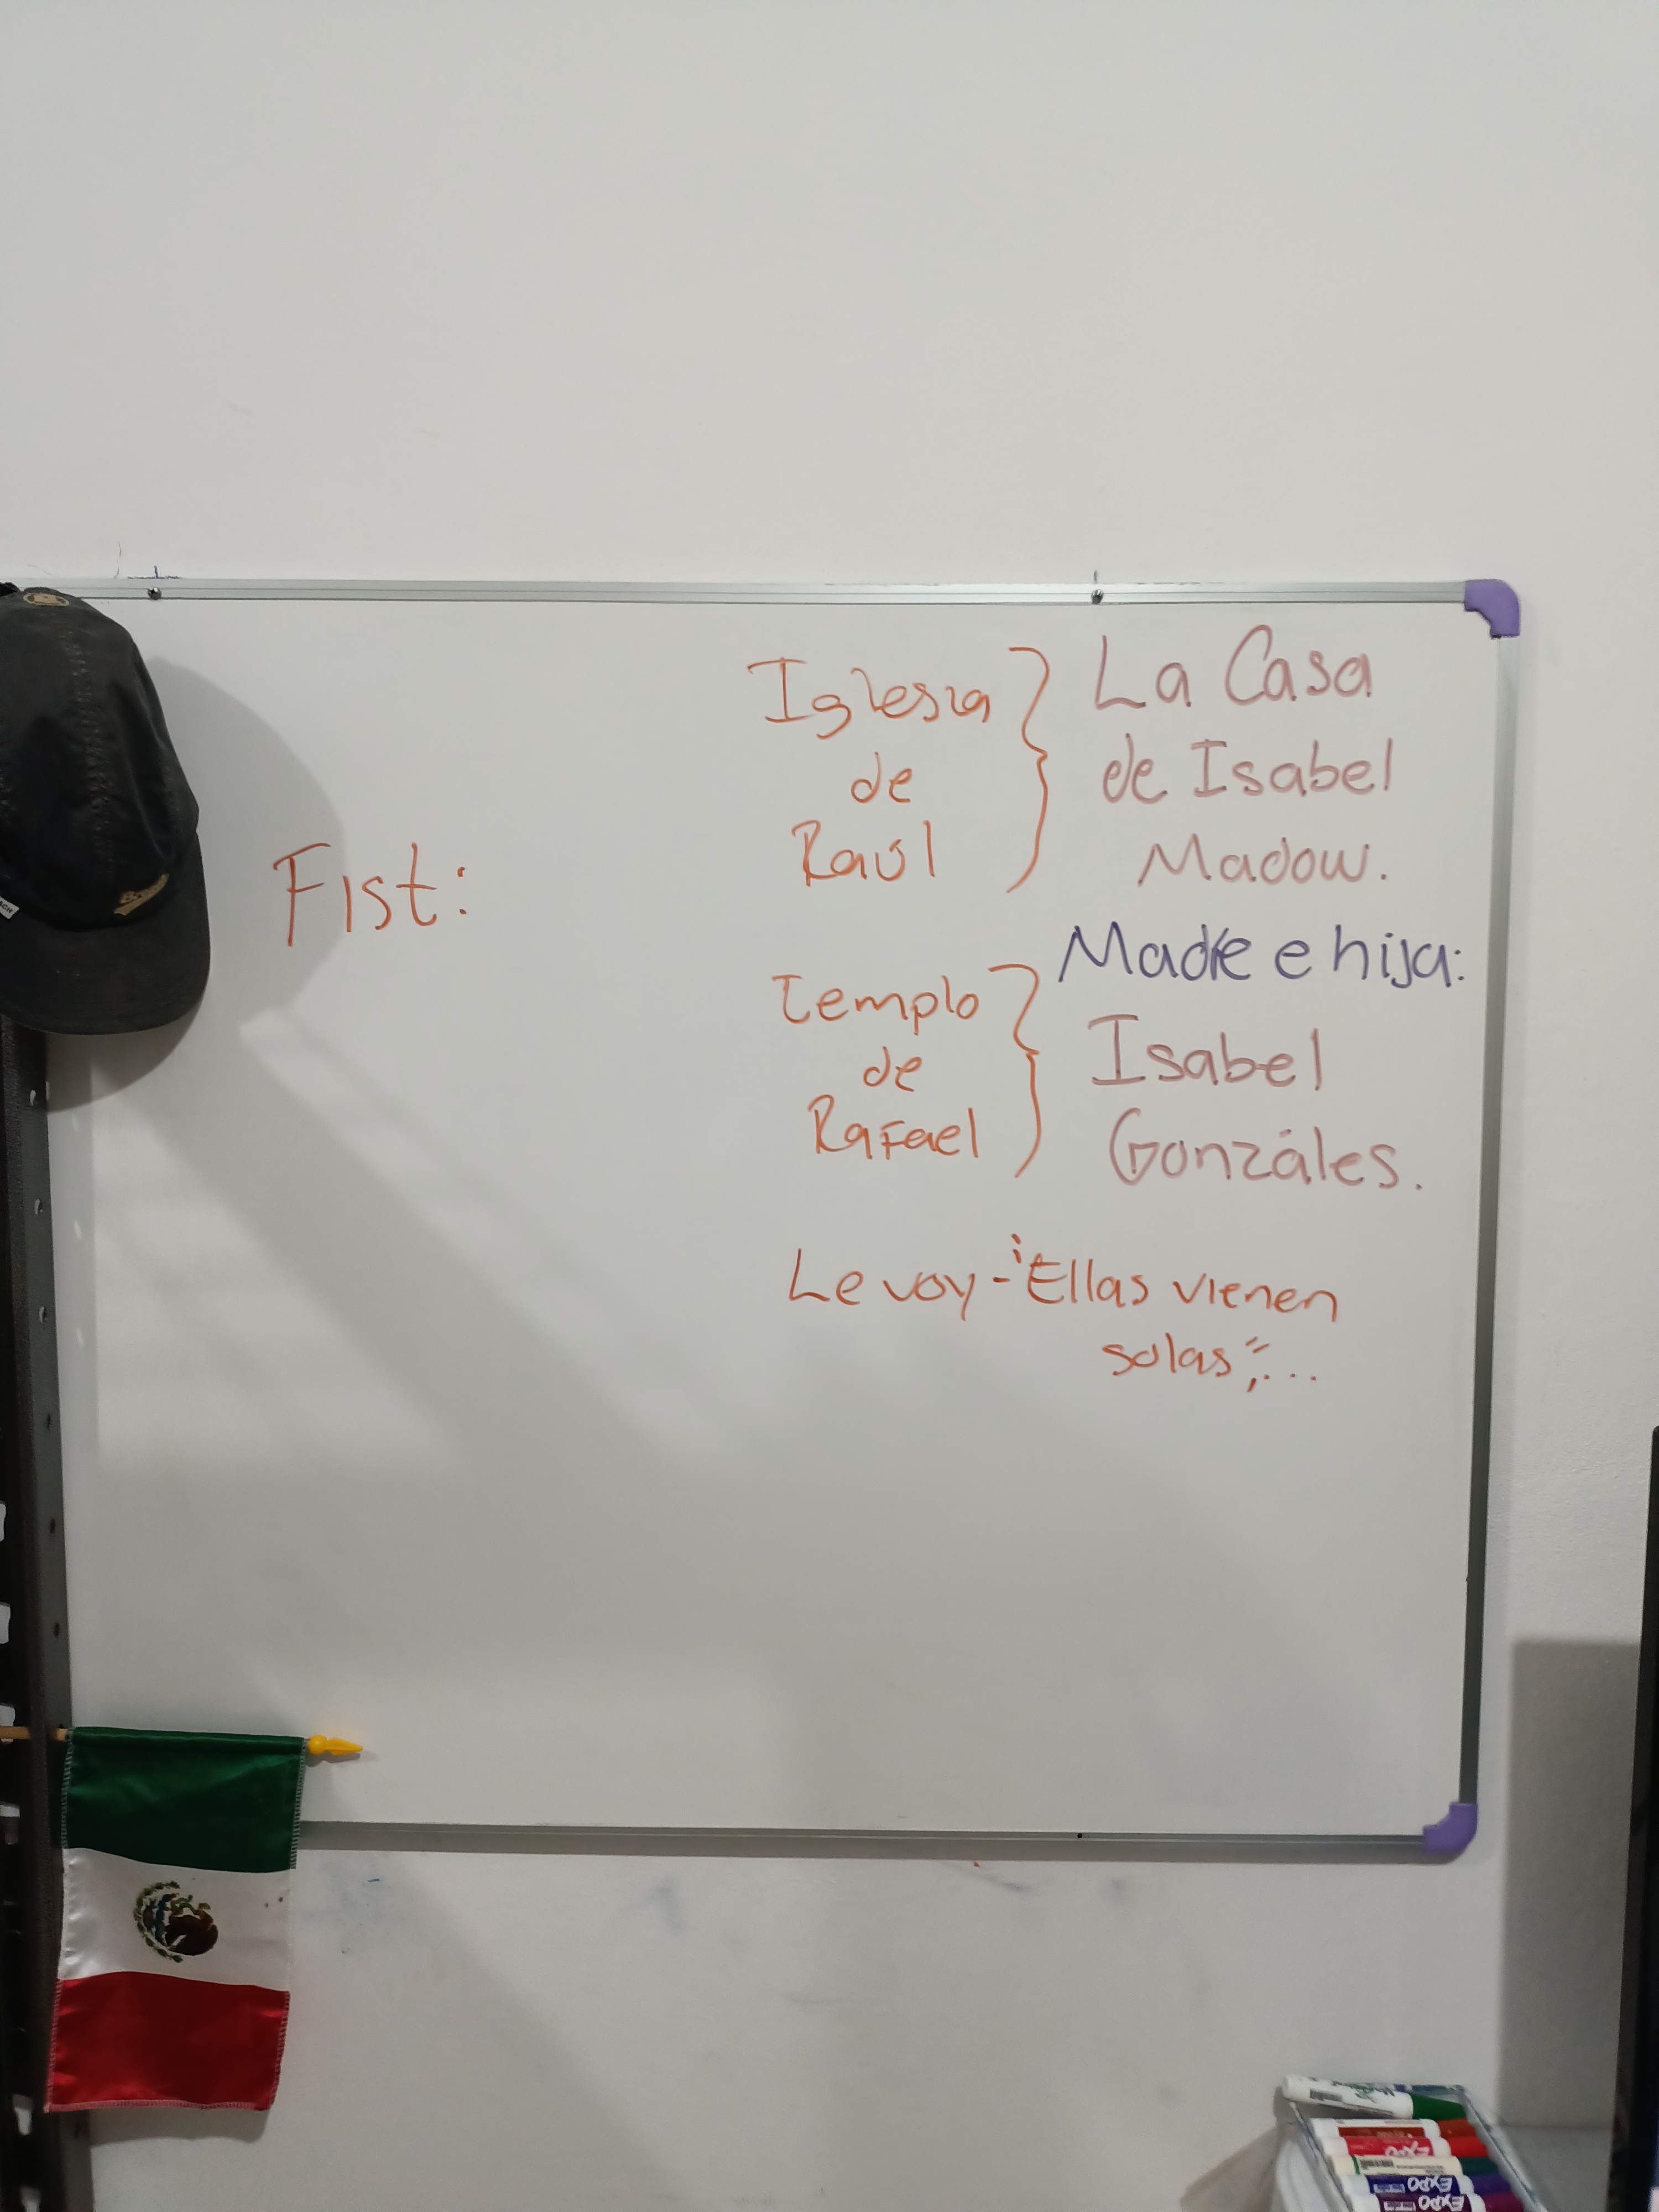 Fist:
Iglesia
de
Raúl
La Casa
de Isabel
Madow.
Madre e hija:
Templo
de
Rafael
Isabel
Gonzáles.
Le voy - ¨Ellas vienen
solas¨;...
EXPO
EXPO
EXPO